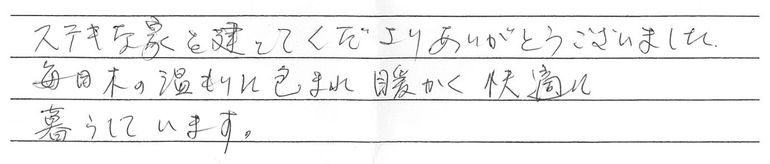 ステキな家を建ててくださりありがとうございました.
毎日木の温もりに包まれ 暖かく 快適に
暮らしています。